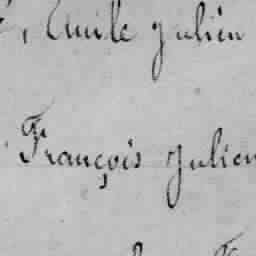 , Emile Julien
François Julien